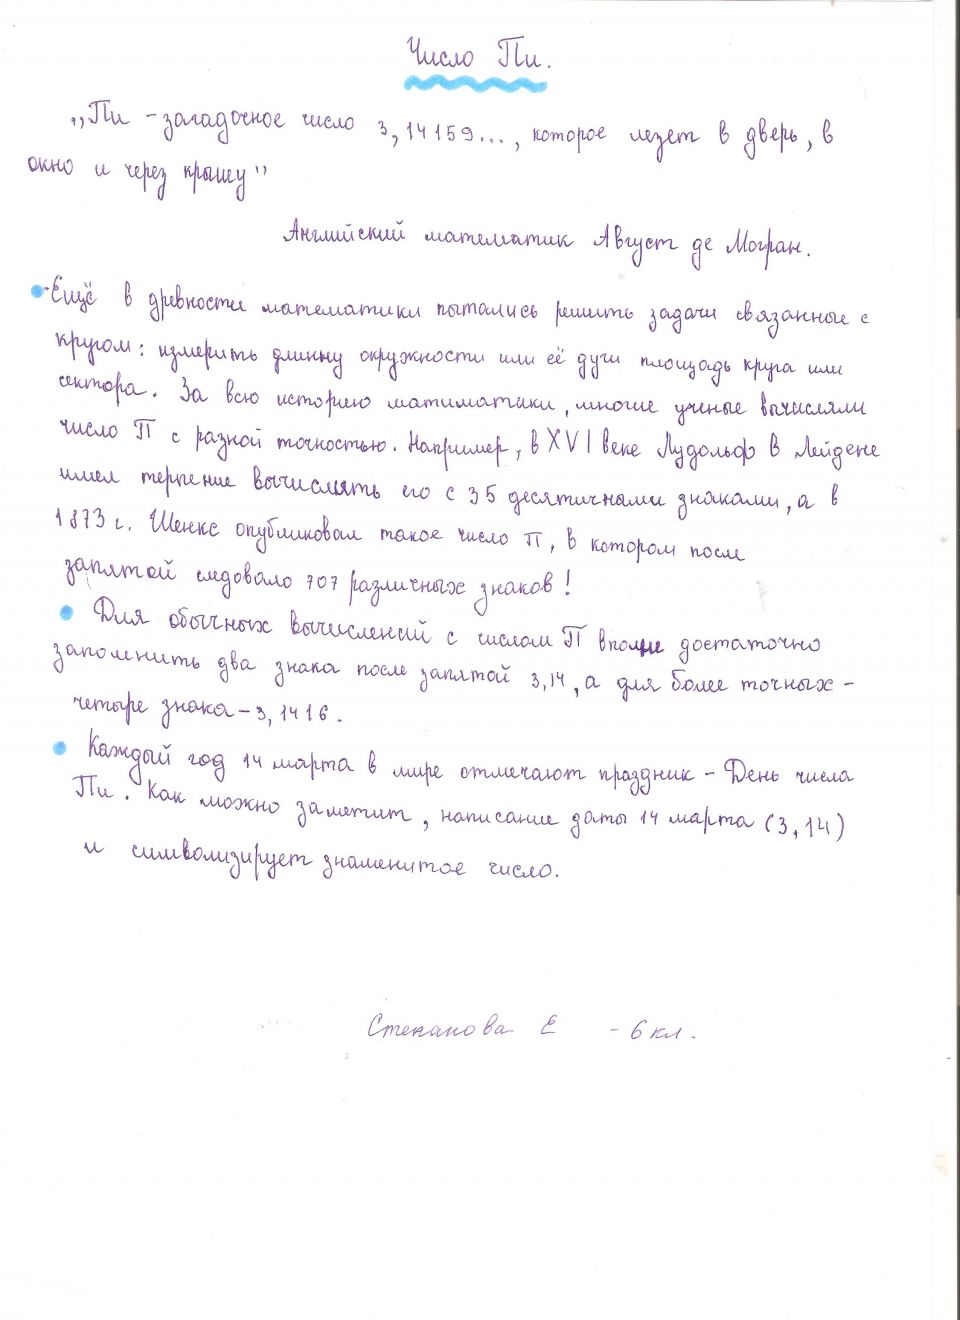 Число Пи.
„Пи - загадочное число 3,14159..., которое лезет в дверь, в
окно и через крышу"
Английский математик Август де Могран.
Ещё в древности математики пытались решить задачи связанные с
кругом: измерить длинну окружности или её дуги площадь круга или
сектора. За всю историю матиматики, многие ученые вычисляли
число П с разной точностью. Например, в XVI веке Лудольф в Лейдене
имел терпение вычислять его с 35 десятичными знаками, а в
1873 г. Шенкс опубликовал такое число П, в котором после
запятой следовало 707 различных знаков!
Для обычных вычислений с числом П вполне достаточно
запомнить два знака после запятой 3,14, а для более точных -
четыре знака - 3,1416.
Каждый год 14 марта в мире отмечают праздник - День числа
Пи. Как можно заметит, написание даты 14 марта (3,14)
и символизирует знаменитое число.
Степанова Е - 6 кл.